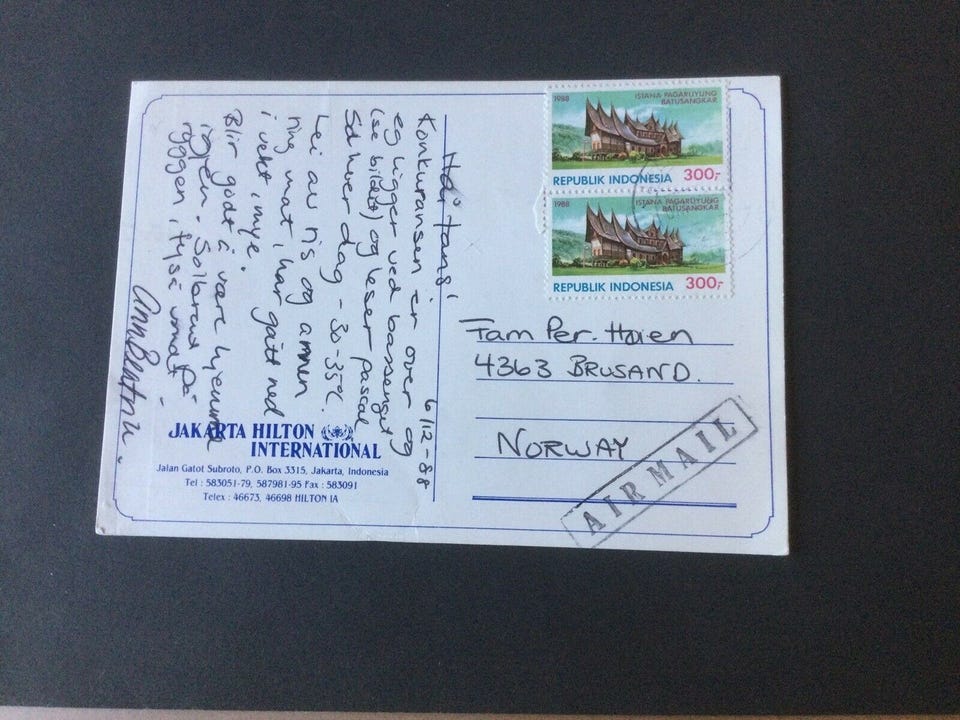 6/12-88
Hai tang!
Konkuransen er over og
eg ligger ved bassenget
(se bildet) og leser pascal
30-35°C.
Lei av ris og annen
mat, har gått ned
i vekt, mye.
Blir godt å være hjemme
igjen. Solbrent på
ryggen,
AnnBeatrix.
JAKARTA HILTON
INTERNATIONAL
Jalan Gatot Subroto, P.O. Box 3315, Jakarta, Indonesia
Tel : 583051-79, 587981-95 Fax : 583091
Telex : 46673, 46698 HILTON IA
1988 ISTANA PAGARUYUNG
BATUSANGKAR
REPUBLIK INDONESIA 300,-
1988 ISTANA PAGARUYUNG
BATUSANGKAR
REPUBLIK INDONESIA 300,-
Fam Per. Høien
4363 BRUSAND.
NORWAY
AIR MAIL